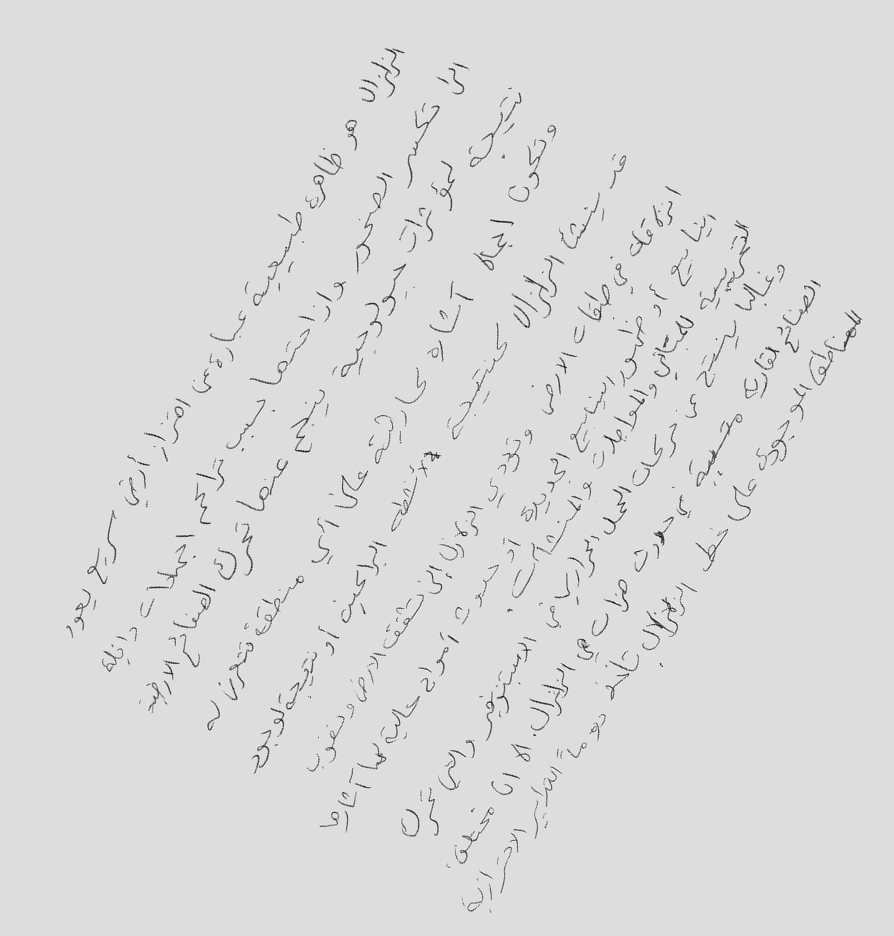 الزلزال هو ظاهرة طبيعية عبارة عن اهتزاز أرضي سريع يعود
الى تكسر الصخور وازاحتها بسبب تراكم اجهادات داخلية
نتيجة لمؤثرات جيولوجية ينجم عنها تحرك الصفائح الارضية
وتكون آثاره كارثية على أي منطقة تتعرض له
قد ينشأ الزلزال كنتيجة لأنشطة البراكين أو نتيجة لوجود
انزلاقات في طبقات الارض وتؤدي الزلازل إلى تشقق الارض ونضوب
الينابيع أو ظهور الينابيع الجديدة أو حدوث أمواج عالية لها آثارها
التخريبية للمباني والمواصلات والمنشآت.
وغالبا ينتج عن حركات الحمل الحراري في الاستنوسفير والتي تحرك
الصفائح القارية متسببة في حدوث هزات هي الزلازل. الا ان مختلف
المناطق الموجودة على خط الزلازل تأخذ دوماً التدابير الاحترازية.